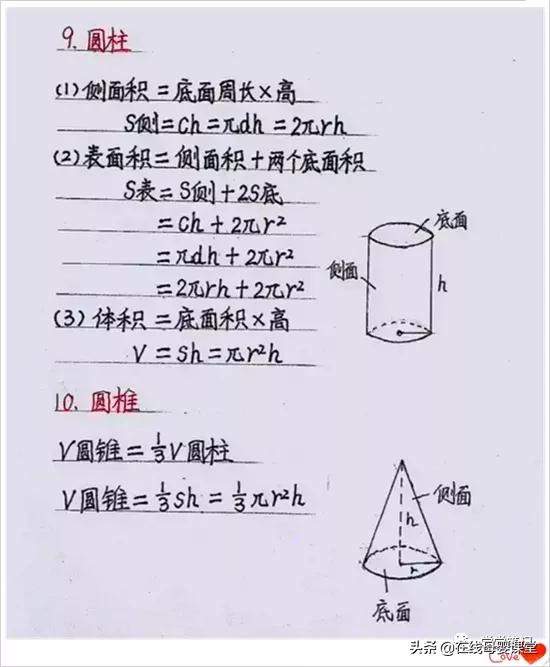 9. 圆柱
(1) 侧面积 = 底面周长×高
S侧 = Ch = πdh = 2πrh
(2) 表面积 = 侧面积 + 两个底面积
S表 = S侧 + 2S底
= Ch + 2πr²
= πdh + 2πr²
= 2πrh + 2πr²
底面
侧面
h
(3) 体积 = 底面积×高
V = Sh = πr²h
10. 圆椎
V圆锥 = 1/3 V圆柱
V圆锥 = 1/3 Sh = 1/3 πr²h
侧面
h
r
底面
头条 @在线母婴课堂
Love